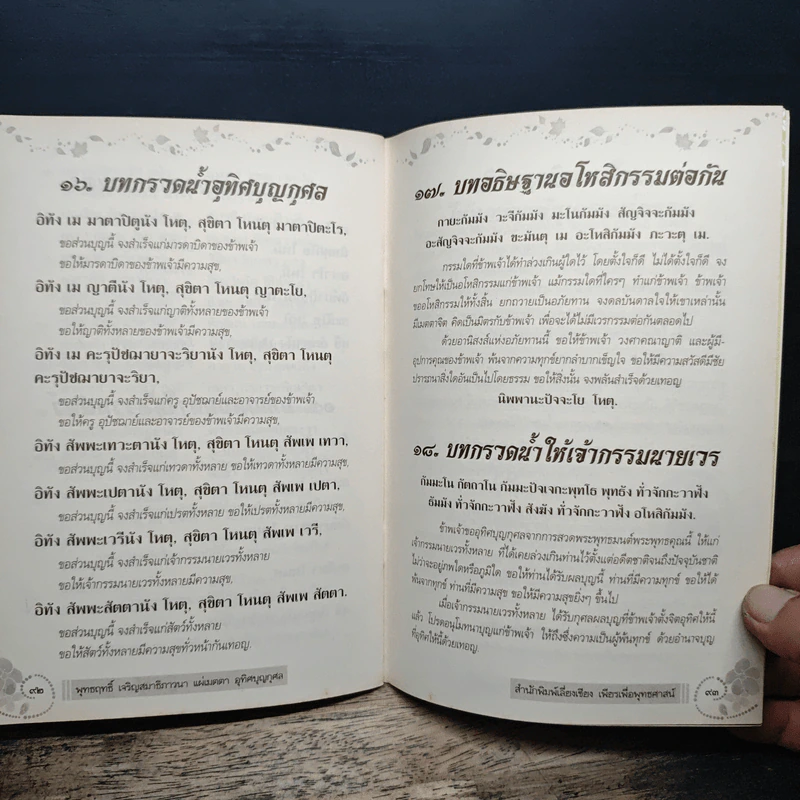 ๑๖. บทกรวดน้ำอุทิศบุญกุศล
อิทัง เม มาตาปิตูนัง โหตุ, สุขิตา โหนตุ มาตาปิตะโร,
ขอส่วนบุญนี้ จงสำเร็จแก่มารดาบิดาของข้าพเจ้า
ขอให้มารดาบิดาของข้าพเจ้ามีความสุข,
อิทัง เม ญาตีนัง โหตุ, สุขิตา โหนตุ ญาตะโย,
ขอส่วนบุญนี้ จงสำเร็จแก่ญาติทั้งหลายของข้าพเจ้า
ขอให้ญาติทั้งหลายของข้าพเจ้ามีความสุข,
อิทัง เม คะรุปัชฌายาจะริยานัง โหตุ, สุขิตา โหนตุ
คะรุปัชฌายาจะริยา,
ขอส่วนบุญนี้ จงสำเร็จแก่ครู อุปัชฌาย์และอาจารย์ของข้าพเจ้า
ขอให้ครู อุปัชฌาย์และอาจารย์ของข้าพเจ้ามีความสุข,
อิทัง สัพพะเทวะตานัง โหตุ, สุขิตา โหนตุ สัพเพ เทวา,
ขอส่วนบุญนี้ จงสำเร็จแก่เทวดาทั้งหลาย ขอให้เทวดาทั้งหลายมีความสุข,
อิทัง สัพพะเปตานัง โหตุ, สุขิตา โหนตุ สัพเพ เปตา,
ขอส่วนบุญนี้ จงสำเร็จแก่เปรตทั้งหลาย ขอให้เปรตทั้งหลายมีความสุข,
อิทัง สัพพะเวรีนัง โหตุ, สุขิตา โหนตุ สัพเพ เวรี,
ขอส่วนบุญนี้ จงสำเร็จแก่เจ้ากรรมนายเวรทั้งหลาย
ขอให้เจ้ากรรมนายเวรทั้งหลายมีความสุข,
อิทัง สัพพะสัตตานัง โหตุ, สุขิตา โหนตุ สัพเพ สัตตา.
ขอส่วนบุญนี้ จงสำเร็จแก่สัตว์ทั้งหลาย
ขอให้สัตว์ทั้งหลายมีความสุขทั่วหน้ากันเทอญ.
๙๒
พุทธฤทธิ์ เจริญสมาธิภาวนา แผ่เมตตา อุทิศบุญกุศล
๑๗. บทอธิษฐานอโหสิกรรมต่อกัน
กายะกัมมัง วะจีกัมมัง มะโนกัมมัง สัญจิจจะกัมมัง
อะสัญจิจจะกัมมัง ขะมันตุ เม อะโหสิกัมมัง ภะวะตุ เม.
กรรมใดที่ข้าพเจ้าได้ทำล่วงเกินผู้ใดไว้ โดยตั้งใจก็ดี ไม่ได้ตั้งใจก็ดี จง
ยกโทษให้เป็นอโหสิกรรมแก่ข้าพเจ้า แม้กรรมใดที่ใครๆ ทำแก่ข้าพเจ้า ข้าพเจ้า
ขออโหสิกรรมให้ทั้งสิ้น ยกถวายเป็นอภัยทาน จงดลบันดาลใจให้เขาเหล่านั้น
มีเมตตาจิต คิดเป็นมิตรกับข้าพเจ้า เพื่อจะได้ไม่มีเวรกรรมต่อกันตลอดไป
ด้วยอานิสงส์แห่งอภัยทานนี้ ขอให้ข้าพเจ้า วงศาคณาญาติ และผู้มี-
อุปการคุณของข้าพเจ้า พ้นจากความทุกข์ยากลำบากเข็ญใจ ขอให้มีความสวัสดีมีชัย
ปรารถนาสิ่งใดอันเป็นไปโดยธรรม ขอให้สิ่งนั้น จงพลันสำเร็จด้วยเทอญ
นิพพานะปัจจะโย โหตุ.
๑๘. บทกรวดน้ำให้เจ้ากรรมนายเวร
กัมมะโน กัตตาโน กัมมะปัจเจกะพุทโธ พุทธัง ทั่วจักกะวาฬัง
ธัมมัง ทั่วจักกะวาฬัง สังฆัง ทั่วจักกะวาฬัง อโหสิกัมมัง.
ข้าพเจ้าขออุทิศบุญกุศลจากการสวดพระพุทธมนต์พระพุทธคุณนี้ ให้แก่
เจ้ากรรมนายเวรทั้งหลาย ที่ได้เคยล่วงเกินท่านไว้ตั้งแต่อดีตชาติจนถึงปัจจุบันชาติ
ไม่ว่าจะอยู่ภพใดหรือภูมิใด ขอให้ท่านได้รับผลบุญนี้ ท่านที่มีความทุกข์ ขอให้ได้
พ้นจากทุกข์ ท่านที่มีความสุข ขอให้มีความสุขยิ่งๆ ขึ้นไป
เมื่อเจ้ากรรมนายเวรทั้งหลาย ได้รับกุศลผลบุญที่ข้าพเจ้าตั้งจิตอุทิศให้นี้
แล้ว โปรดอนุโมทนาบุญแก่ข้าพเจ้า ให้ถึงซึ่งความเป็นผู้พ้นทุกข์ ด้วยอำนาจบุญ
ที่อุทิศให้นี้ด้วยเทอญ.
สำนักพิมพ์เลี่ยงเชียง เพียรเพื่อพุทธศาสน์
๙๓